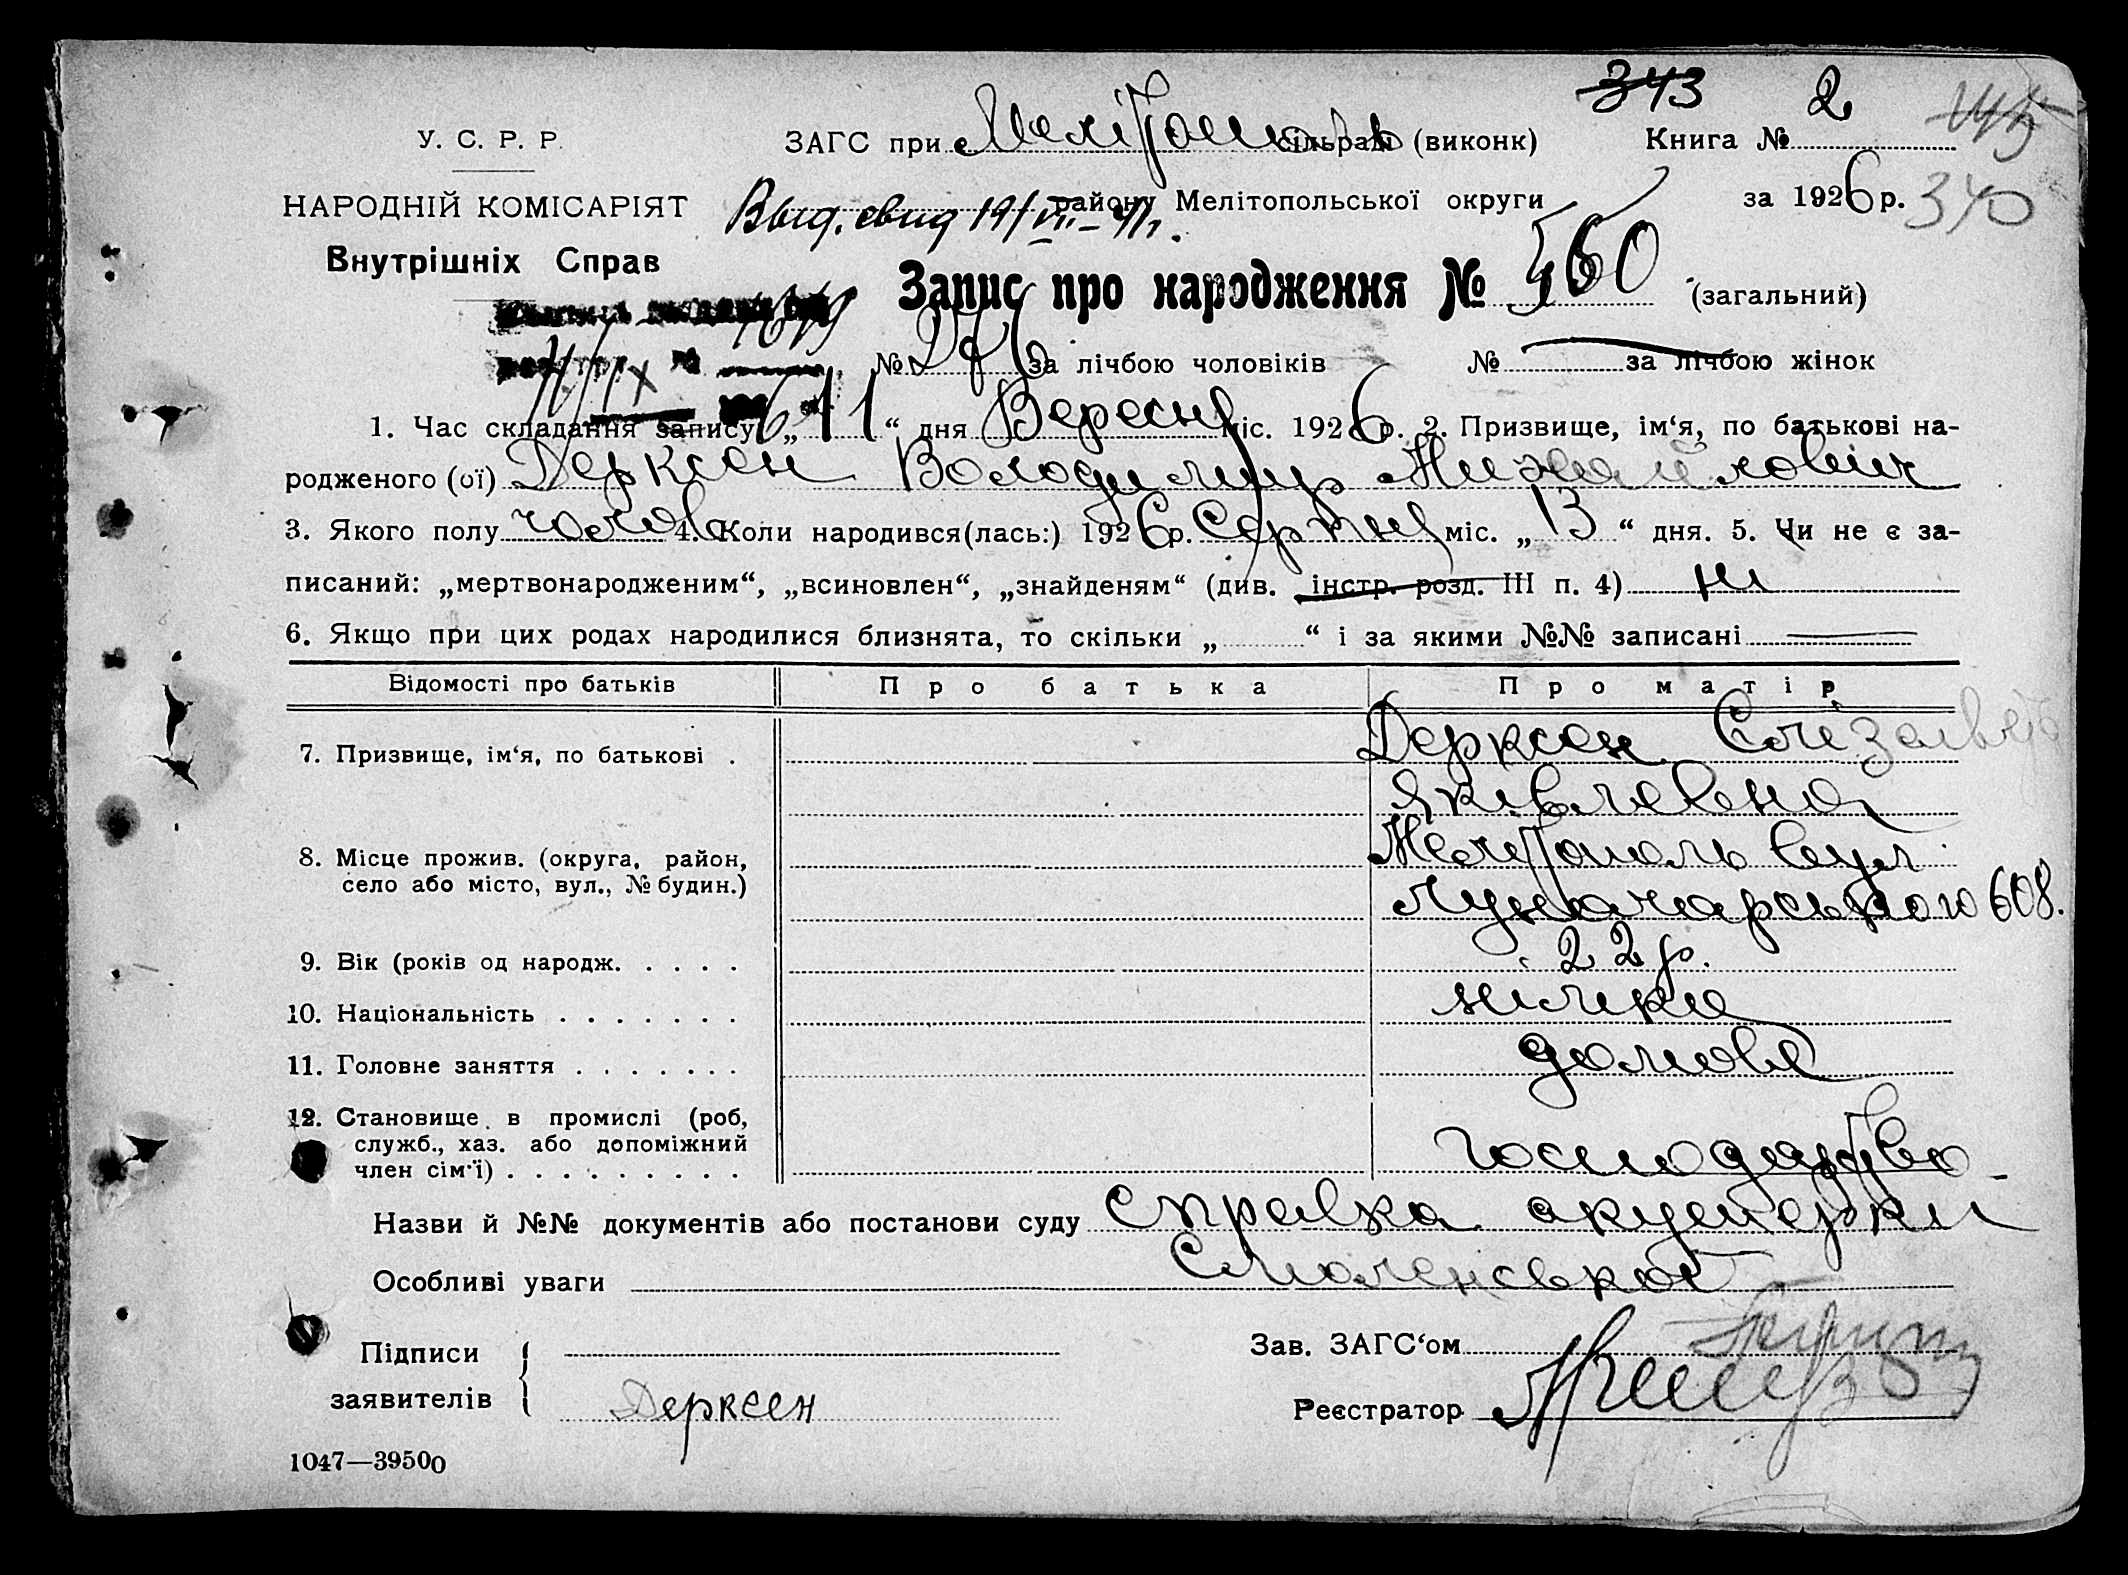 343 2
У. С. Р. Р. ЗАГС при Мелітопольск сільраді (виконк) Книга №
НАРОДНІЙ КОМІСАРІЯТ району Мелітопольської округи за 1926 р. 340
Выд. свид 19/VII-41 г.
Внутрішніх Справ
Запис про народження № 560 (загальний)
1679
№ за лічбою чоловіків № за лічбою жінок
1. Час складання запису „11“ дня Вересня міс. 1926 р. 2. Призвище, ім‘я, по батькові на-
родженого (ої) Дерксен Володимир Михайлович
3. Якого полу чолов 4. Коли народився(лась:) 1926 р. Серпня міс. „13“ дня. 5. Чи не є за-
писаний: „мертвонародженим“, „всиновлен“, „знайденям“ (див. інстр. розд. III п. 4) ні
6. Якщо при цих родах народилися близнята, то скільки „ “ і за якими №№ записані
Відомості про батьків Про батька Про матір
7. Призвище, ім‘я, по батькові . Дерксен Єлізавета
Яківлевна
8. Місце прожив. (округа, район, Мелітополь вул.
село або місто, вул., № будин.) Луначарського 608.
9. Вік (років од народж. . . . . 22 р.
10. Національність . . . . . . . німка
11. Головне заняття . . . . . . . домове
12. Становище в промислі (роб,
служб., хаз. або допоміжний господарство
член сім‘ї) . . . . . . . . .
Назви й №№ документів або постанови суду справка акушерки
Особливі уваги Смоленської
Підписи Зав. ЗАГС‘ом
заявителів Дерксен Реєстратор
1047—39500